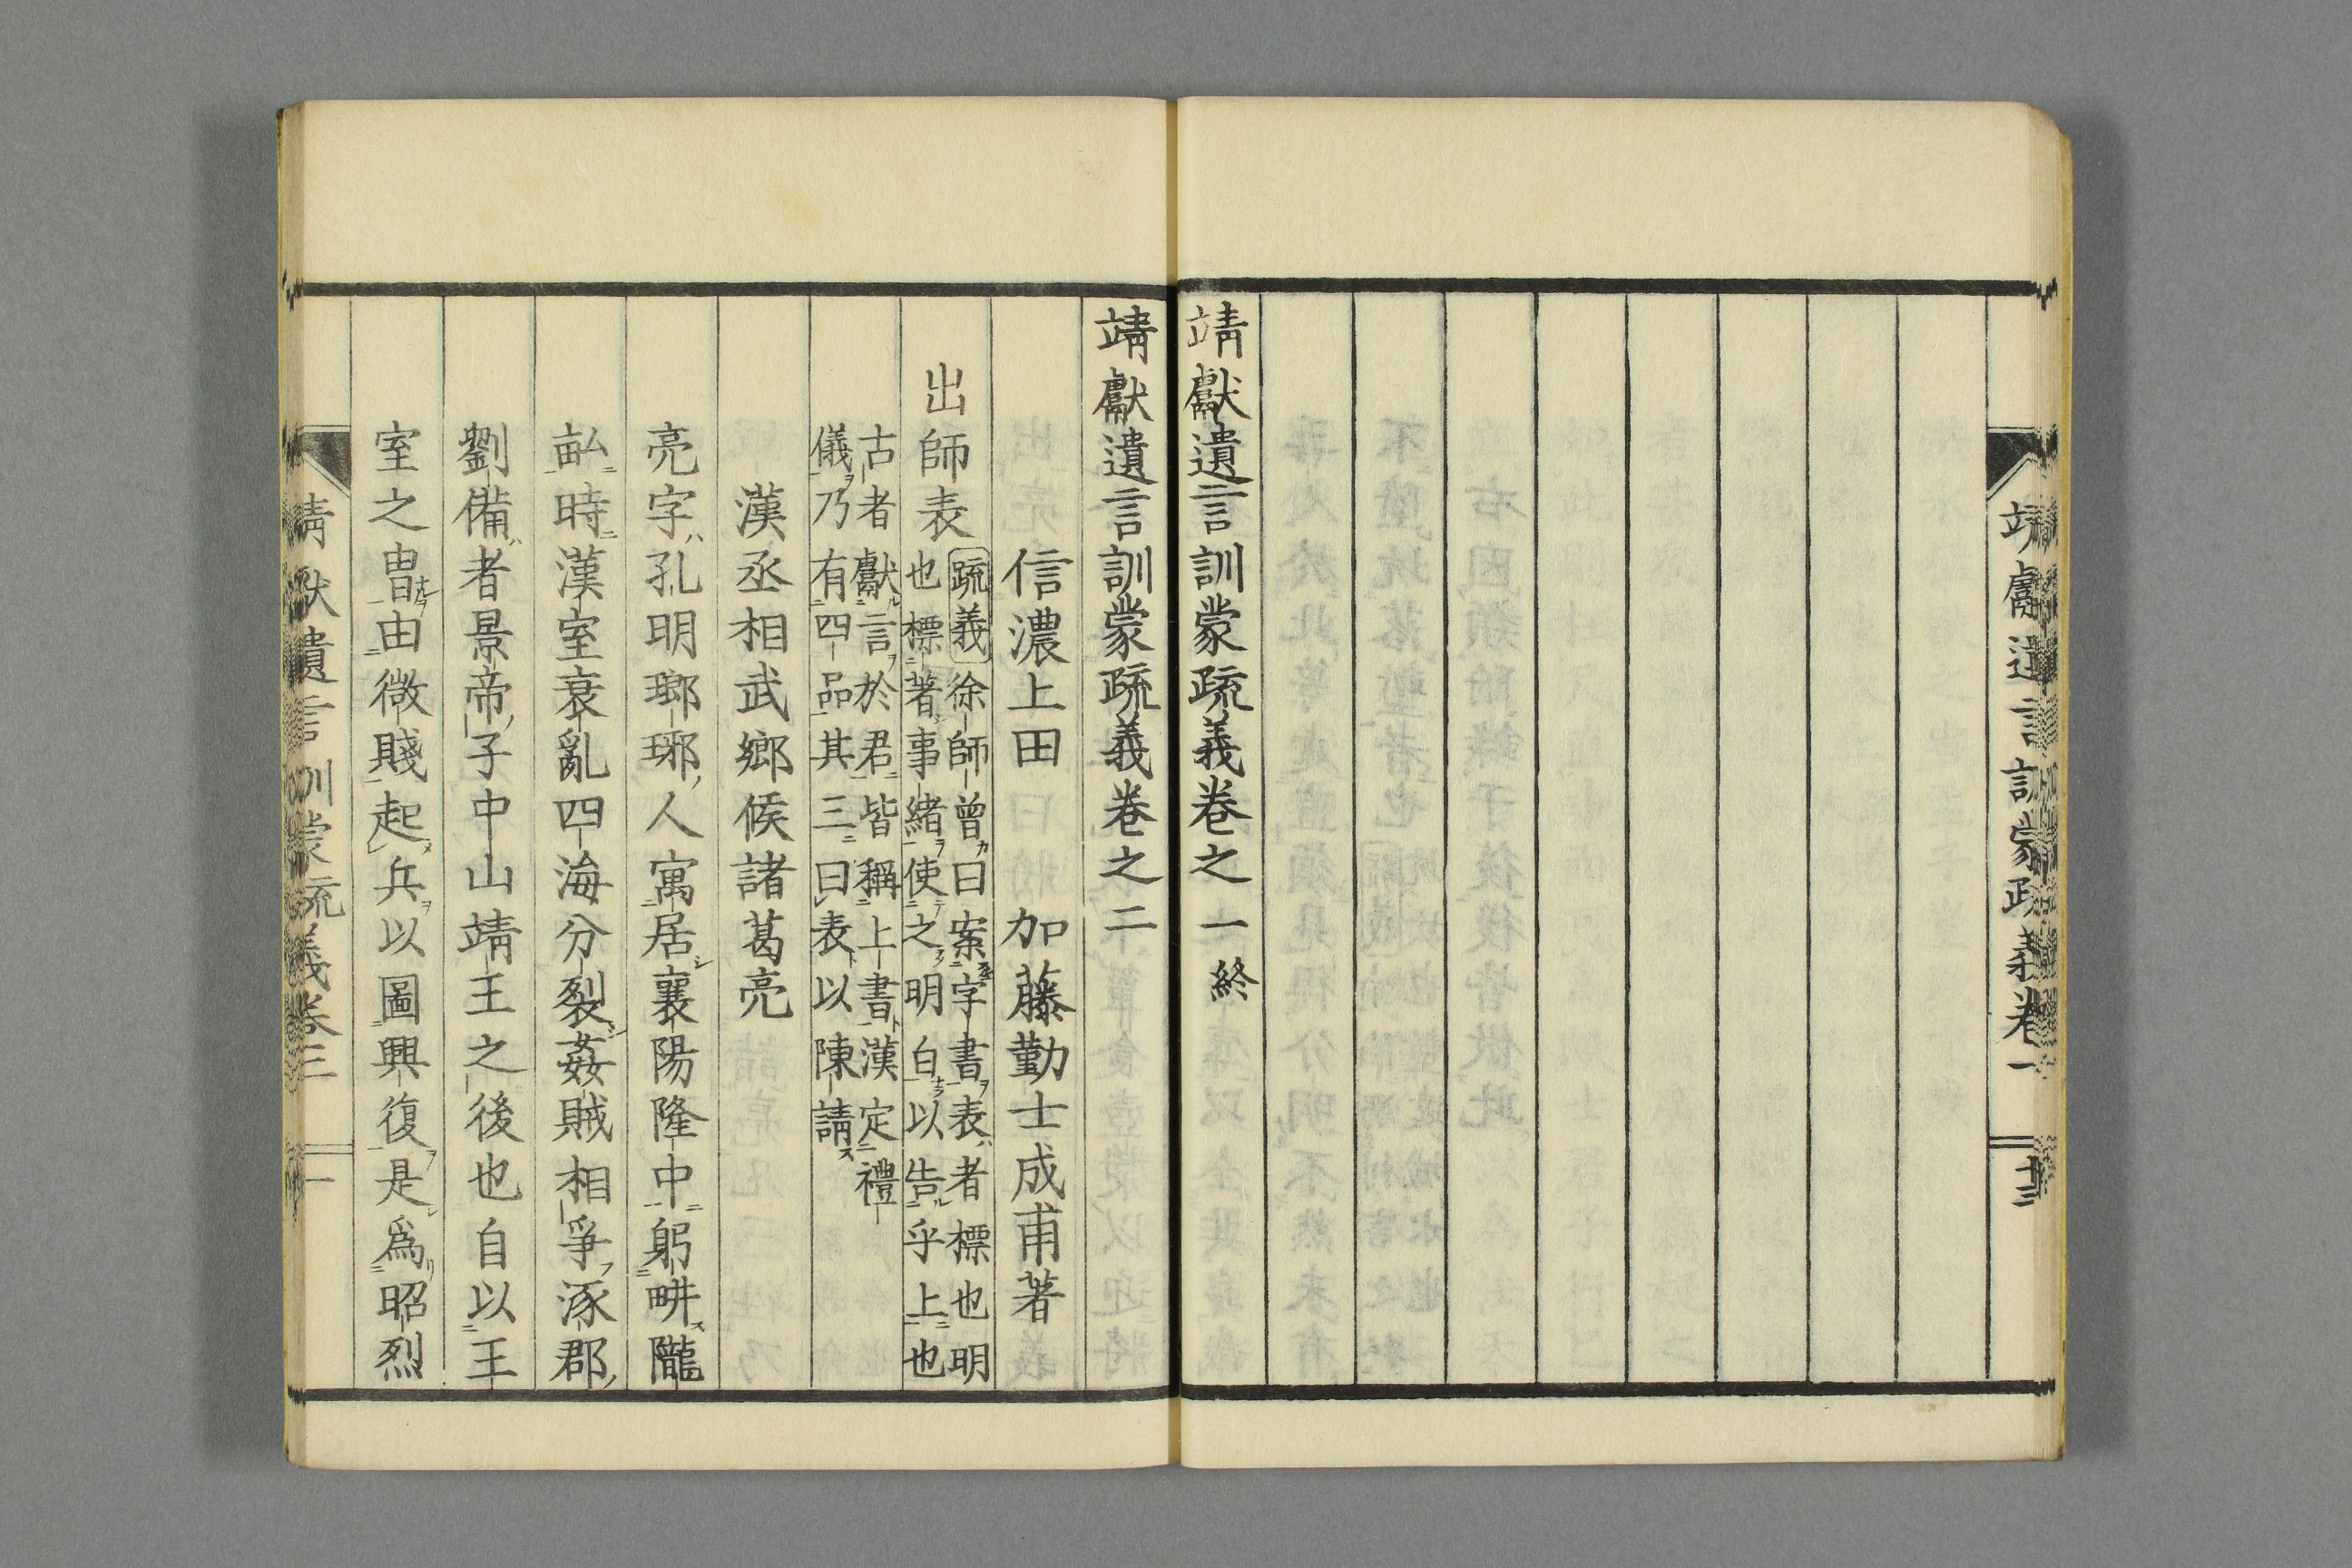 靖獻遺言訓蒙疏義卷一
十三
靖獻遺言訓蒙疏義卷之一終
靖獻遺言訓蒙疏義卷之二
信濃上田　加藤勤士成甫著
出師表
疏義徐師曾曰案字書表者標也明
也標著事緒使之明白以告乎上也
古者獻言於君皆稱上書漢定禮
儀乃有四品其三曰表以陳請
漢丞相武鄉侯諸葛亮
亮字孔明瑯琊人寓居襄陽隆中躬畊隴
畝時漢室衰亂四海分裂姦賊相爭涿郡
劉備者景帝子中山靖王之後也自以王
室之冑由微賤起兵以圖興復是爲昭烈
靖獻遺言訓蒙疏義卷二
一